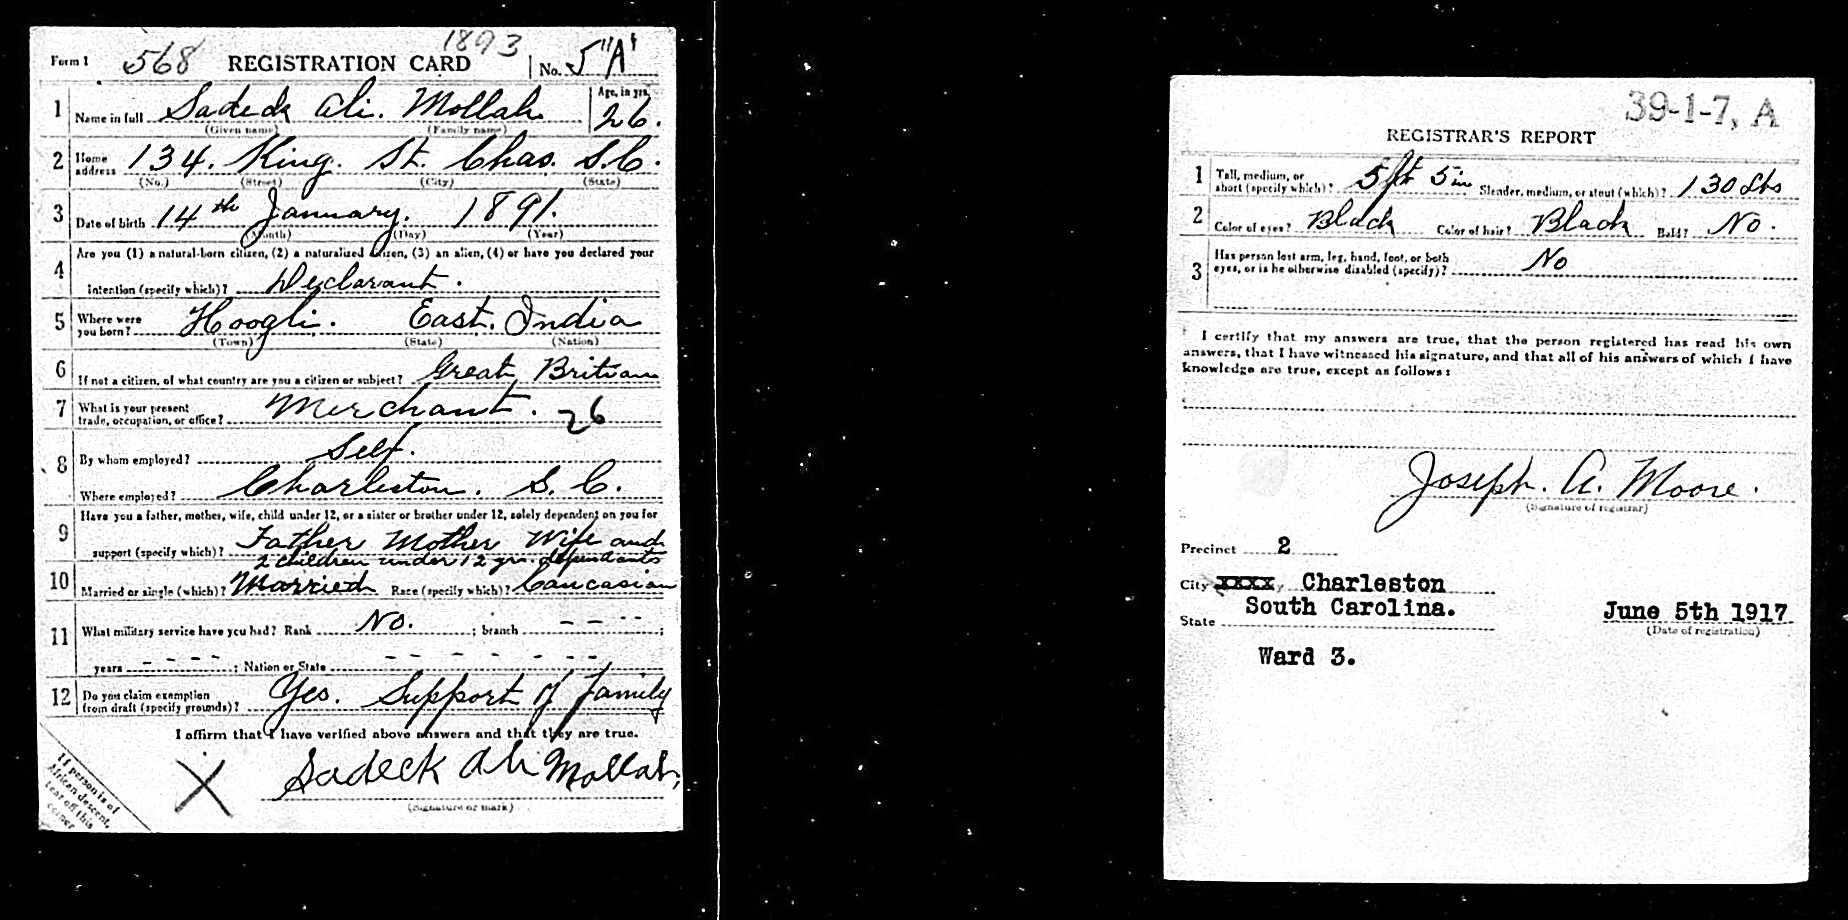 1893
Form 1 568 REGISTRATION CARD No. 5 "A"
1 Name in full Sadeck Ali. Mollah. Age, in yrs. 26.
(Given name) (Family name)
2 Home address 134. King. St. Chas. S.C.
(No.) (Street) (City) (State)
3 Date of birth 14th January. 1891.
(Month) (Day) (Year)
4 Are you (1) a natural-born citizen, (2) a naturalized citizen, (3) an alien, (4) or have you declared your
intention (specify which)? Declarant.
5 Where were you born? Hoogli. East. India
(Town) (State) (Nation)
6 If not a citizen, of what country are you a citizen or subject? Great Britian
7 What is your present trade, occupation, or office? Merchant. 26
8 By whom employed? Self.
Where employed? Charleston. S. C.
9 Have you a father, mother, wife, child under 12, or a sister or brother under 12, solely dependent on you for
support (specify which)? Father Mother Wife and
2 children under 12 yrs. dependants
10 Married or single (which)? Married Race (specify which)? Caucasian
11 What military service have you had? Rank No. ; branch - - - - ;
years - - - - ; Nation or State - - - - - - -
12 Do you claim exemption from draft (specify grounds)? Yes. Support of family
I affirm that I have verified above answers and that they are true.
X Sadeck Ali Mollah,
(Signature or mark)
If person is of
African descent,
tear off this
corner
39-1-7, A
REGISTRAR'S REPORT
1 Tall, medium, or short (specify which)? 5 ft 5 in Slender, medium, or stout (which)? 130 Lbs
2 Color of eyes? Black Color of hair? Black Bald? No.
3 Has person lost arm, leg, hand, foot, or both eyes, or is he otherwise disabled (specify)? No
I certify that my answers are true, that the person registered has read his own
answers, that I have witnessed his signature, and that all of his answers of which I have
knowledge are true, except as follows:
Joseph. A. Moore.
(Signature of registrar)
Precinct 2
City Charleston
State South Carolina. June 5th 1917
(Date of registration)
Ward 3.